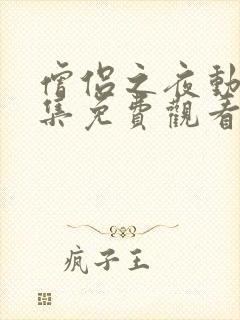 僧侶之夜動
集免費觀看
疯子王